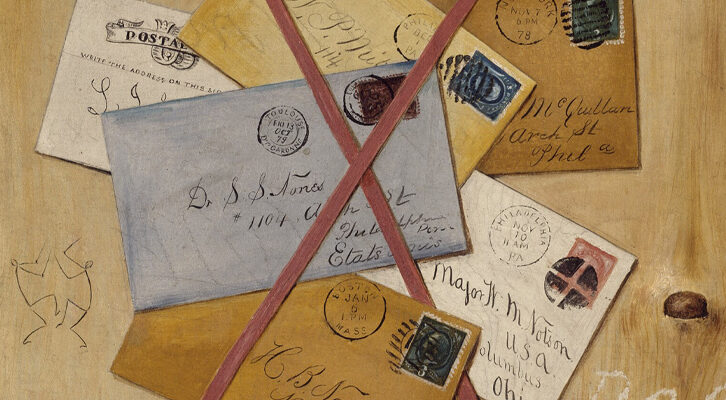 POSTA
WRITE THE ADDRESS ON THIS SID
W. P. M
PHILAD
PA
NOV 7
6 PM
78
McQuillan
Arch St
Phila
TOULOUSE
OCT
79
Dr S. S. Nones
# 1104 Arch St
Philadelphia
Etats Unis
PHILADELPHIA
NOV
10
11 AM
PA
Major W. M. Notson
U S a.
olumbus
Ohi
BOSTON
JAN
6
1 PM
MASS
H. B. N